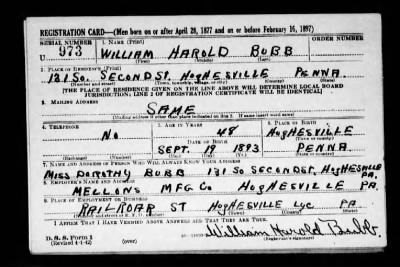 REGISTRATION CARD—(Men born on or after April 28, 1877 and on or before February 16, 1897)
SERIAL NUMBER
1. NAME (Print)
U 973
WILLIAM HAROLD BUBB
(First) (Middle) (Last)
2. PLACE OF RESIDENCE (Print)
131 So. SECOND St. HUGHESVILLE PENNA.
[THE PLACE OF RESIDENCE GIVEN ON THE LINE ABOVE WILL DETERMINE LOCAL BOARD
JURISDICTION; LINE 2 OF REGISTRATION CERTIFICATE WILL BE IDENTICAL]
3. MAILING ADDRESS
SAME
4. TELEPHONE
5. AGE IN YEARS
6. PLACE OF BIRTH
No
48
HUGHESVILLE
DATE OF BIRTH
SEPT. 1893
PENNA.
7. NAME AND ADDRESS OF PERSON WHO WILL ALWAYS KNOW YOUR ADDRESS
MISS DOROTHY BUBB 131 So SECOND ST. HUGHESVILLE PA.
8. EMPLOYER'S NAME AND ADDRESS
MELLONS MFG. Co HUGHESVILLE PA.
9. PLACE OF EMPLOYMENT OR BUSINESS
RAILROAD ST HUGHESVILLE LYC PA
I AFFIRM THAT I HAVE VERIFIED ABOVE ANSWERS AND THAT THEY ARE TRUE.
D. S. S. Form 1
(Revised 4-1-42) (over)
William Harold Bubb
(Registrant's signature)